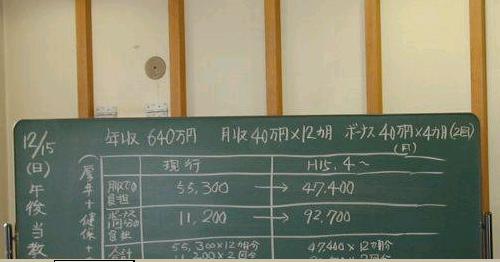 12/15
(日)
午後当教
年収 640万円 月収40万円×12カ月 ボーナス40万円×4カ月(2回)
(月)
厚年+健保+
現行 H15.4~
月収での負担 55,300 → 47,400
ボーナス1回分の負担 11,200 → 92,700
合計 55,300×12カ月分 47,400×12カ月分
11,200×2回分